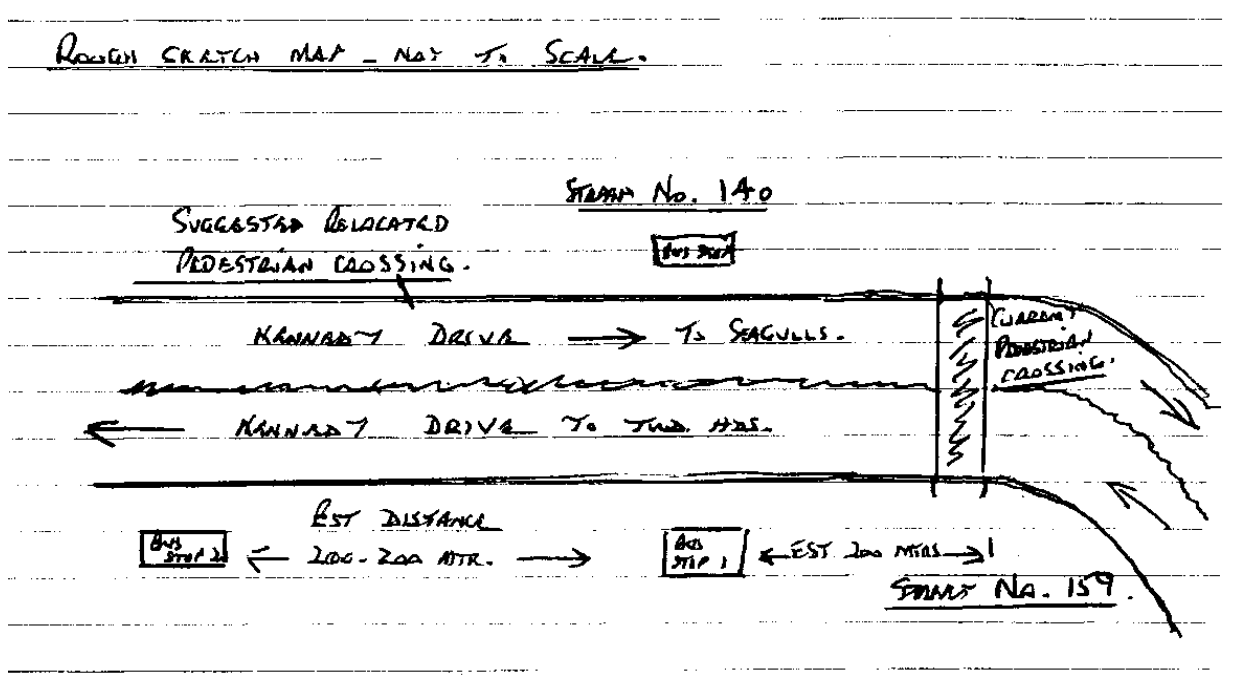 ROUGH SKETCH MAP - NOT TO SCALE.
STREET No. 140
SUGGESTED RELOCATED
PEDESTRIAN CROSSING.
BUS STOP
KENNEDY DRIVE → TO SEAGULLS.
CURRENT
PEDESTRIAN
CROSSING.
← KENNEDY DRIVE TO TWEED HDS.
EST DISTANCE
BUS
STOP 2
← 200 MTR. →
BUS
STOP 1
← EST 200 MTRS →
STREET No. 159.